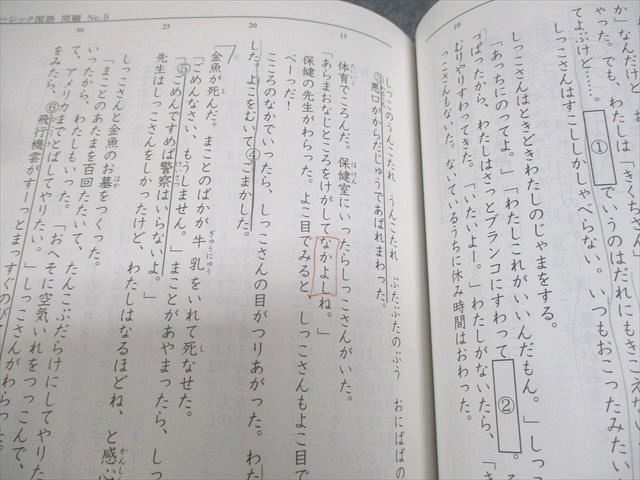 か」なんだけど
やった。でも、わたしは「きくちさん」
てよぶけど……。
① でいうのはだれにもきこえない
しっこさんはすこししかしゃべらない。いつもおこったみたい
しっこさんはときどきわたしのじゃまをする。
「あっちにのってよ。」「わたしこれがいいんだもん。」しっこ
ぱったから、わたしはさっとブランコにすわって ②
むりやりすわってきた。「いたいよー。」わたしがないたら、「き
こともない。ないているうちに休み時間はおわった。
10
ーシック国語 問題 No.5
しっこのうんこたれ うんこたれ ぶたぶたのぶう おにばばの
③悪口がからだじゅうであばれまわった。
体育でころんだ。保健室にいったらしっこさんがいた。
「あらまあおなじところをけがしてなかよしね。」
保健の先生がわらった。よこ目でみると、しっこさんもよこ目で
べーっだ!
こころのなかでいったら、しっこさんの目がつりあがった。わた
した。よこをむいて④ごまかした。
金魚が死んだ。まことのばかが牛乳をいれて死なせた。
「ごめんなさい、もうしません。」まことがあやまったら、しっこ
「⑤ごめんですめば警察はいらないよ。」
先生はしっこさんをしかったけど、わたしはなるほどね、と感心
しっこさんと金魚のお墓をつくった。
「まことのあたまを百回たたいて、たんこぶだらけにしてやりた
いったから、わたしもいった。「おへそに空気いれをつっこんで、
て、アメリカまでとばしてやりたい。」しっこさんがわらった。
をみたら、⑥飛行機雲がすーっとまっすぐのび
15
20
25
30